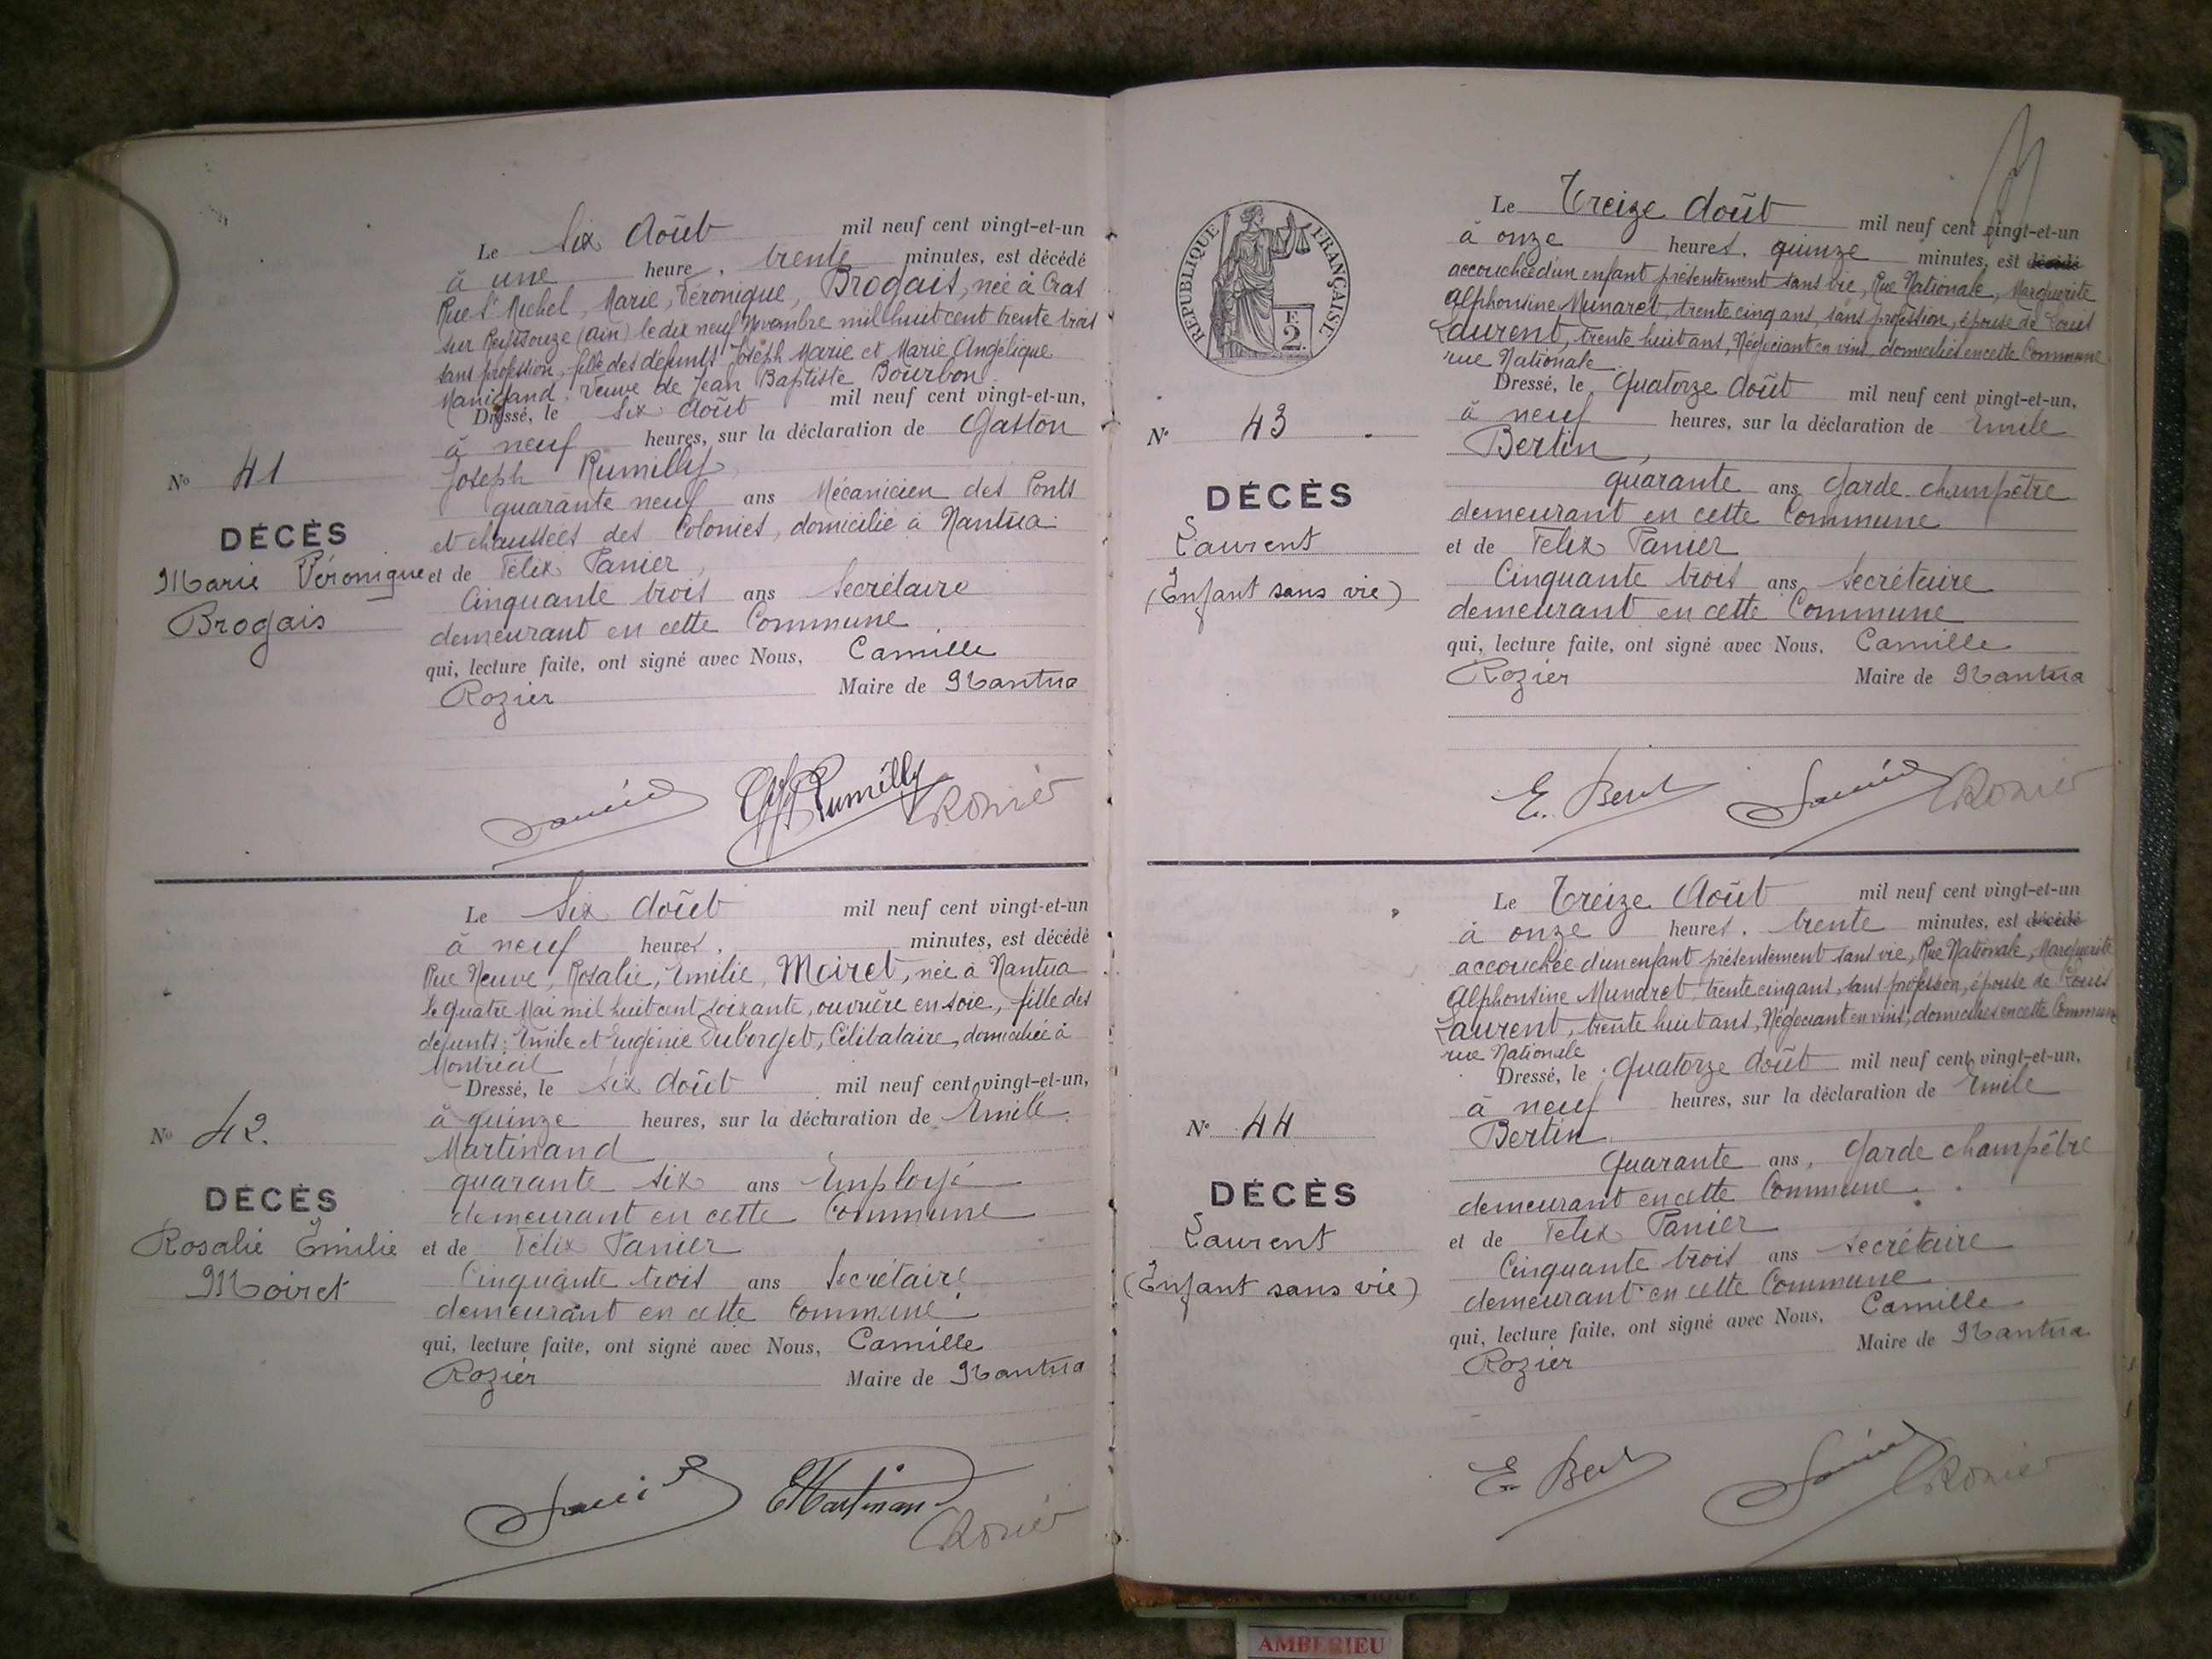 Le Six Août mil neuf cent vingt-et-un
à une heure, trente minutes, est décédé
Rue St Michel, Marie, Véronique, Brogais, née à Cras
sur Reyssouze (Ain) le dix neuf Novembre mil huit cent trente trois
sans profession, fille des défunts Joseph Marie et Marie Angélique
Manigand. Veuve de Jean Baptiste Bourbon
Dressé, le Six Août mil neuf cent vingt-et-un,
à neuf heures, sur la déclaration de Gaston
Joseph Rumilly,
quarante neuf ans Mécanicien des Ponts
et chaussées des Colonies, domicilié à Nantua
et de Félix Panier,
Cinquante trois ans Secrétaire
demeurant en cette Commune
qui, lecture faite, ont signé avec Nous, Camille
Rozier Maire de Nantua
No 41
DÉCÈS
Marie Véronique
Brogais
Rumilly
Rozier
Le Six Août mil neuf cent vingt-et-un
à neuf heures, minutes, est décédé
Rue Neuve, Rosalie, Emilie, Moiret, née à Nantua
le quatre Mai mil huit cent soixante, ouvrière en soie, fille des
défunts: Emile et Eugénie Duborget, Célibataire, domiciliée à
Montréal
Dressé, le Six Août mil neuf cent vingt-et-un,
à quinze heures, sur la déclaration de Emile
Martinand
quarante six ans Employé
demeurant en cette Commune
et de Félix Panier
Cinquante trois ans Secrétaire
demeurant en cette Commune
qui, lecture faite, ont signé avec Nous, Camille
Rozier Maire de Nantua
No 42.
DÉCÈS
Rosalie Emilie
Moiret
EMartinand
Rozier
RÉPUBLIQUE FRANÇAISE
2F.
Le Treize Août mil neuf cent vingt-et-un
à onze heures. quinze minutes, est décédé
accouchée d'un enfant présentement sans vie, Rue Nationale, Marguerite
Alphonsine Munaret, trente cinq ans, sans profession, épouse de Louis
Laurent, trente huit ans, Négociant en vins, domiciliés en cette Commune
rue Nationale.
Dressé, le Quatorze Août mil neuf cent vingt-et-un,
à neuf heures, sur la déclaration de Emile
Bertin,
quarante ans Garde champêtre
demeurant en cette Commune
et de Félix Panier
Cinquante trois ans Secrétaire
demeurant en cette Commune
qui, lecture faite, ont signé avec Nous, Camille
Rozier Maire de Nantua
No 43
DÉCÈS
Laurent
(Enfant sans vie)
E. Bert
Rozier
Le Treize Août mil neuf cent vingt-et-un
à onze heures. trente minutes, est décédé
accouchée d'un enfant présentement sans vie, Rue Nationale, Marguerite
Alphonsine Munaret, trente cinq ans, sans profession, épouse de Louis
Laurent, trente huit ans, Négociant en vins, domiciliés en cette Commune
rue Nationale
Dressé, le Quatorze Août mil neuf cent vingt-et-un,
à neuf heures, sur la déclaration de Emile
Bertin
Quarante ans, Garde champêtre
demeurant en cette Commune.
et de Félix Panier
Cinquante trois ans Secrétaire
demeurant en cette Commune
qui, lecture faite, ont signé avec Nous, Camille
Rozier Maire de Nantua
No 44
DÉCÈS
Laurent
(Enfant sans vie)
E. Bert
Rozier
AMBERIEU